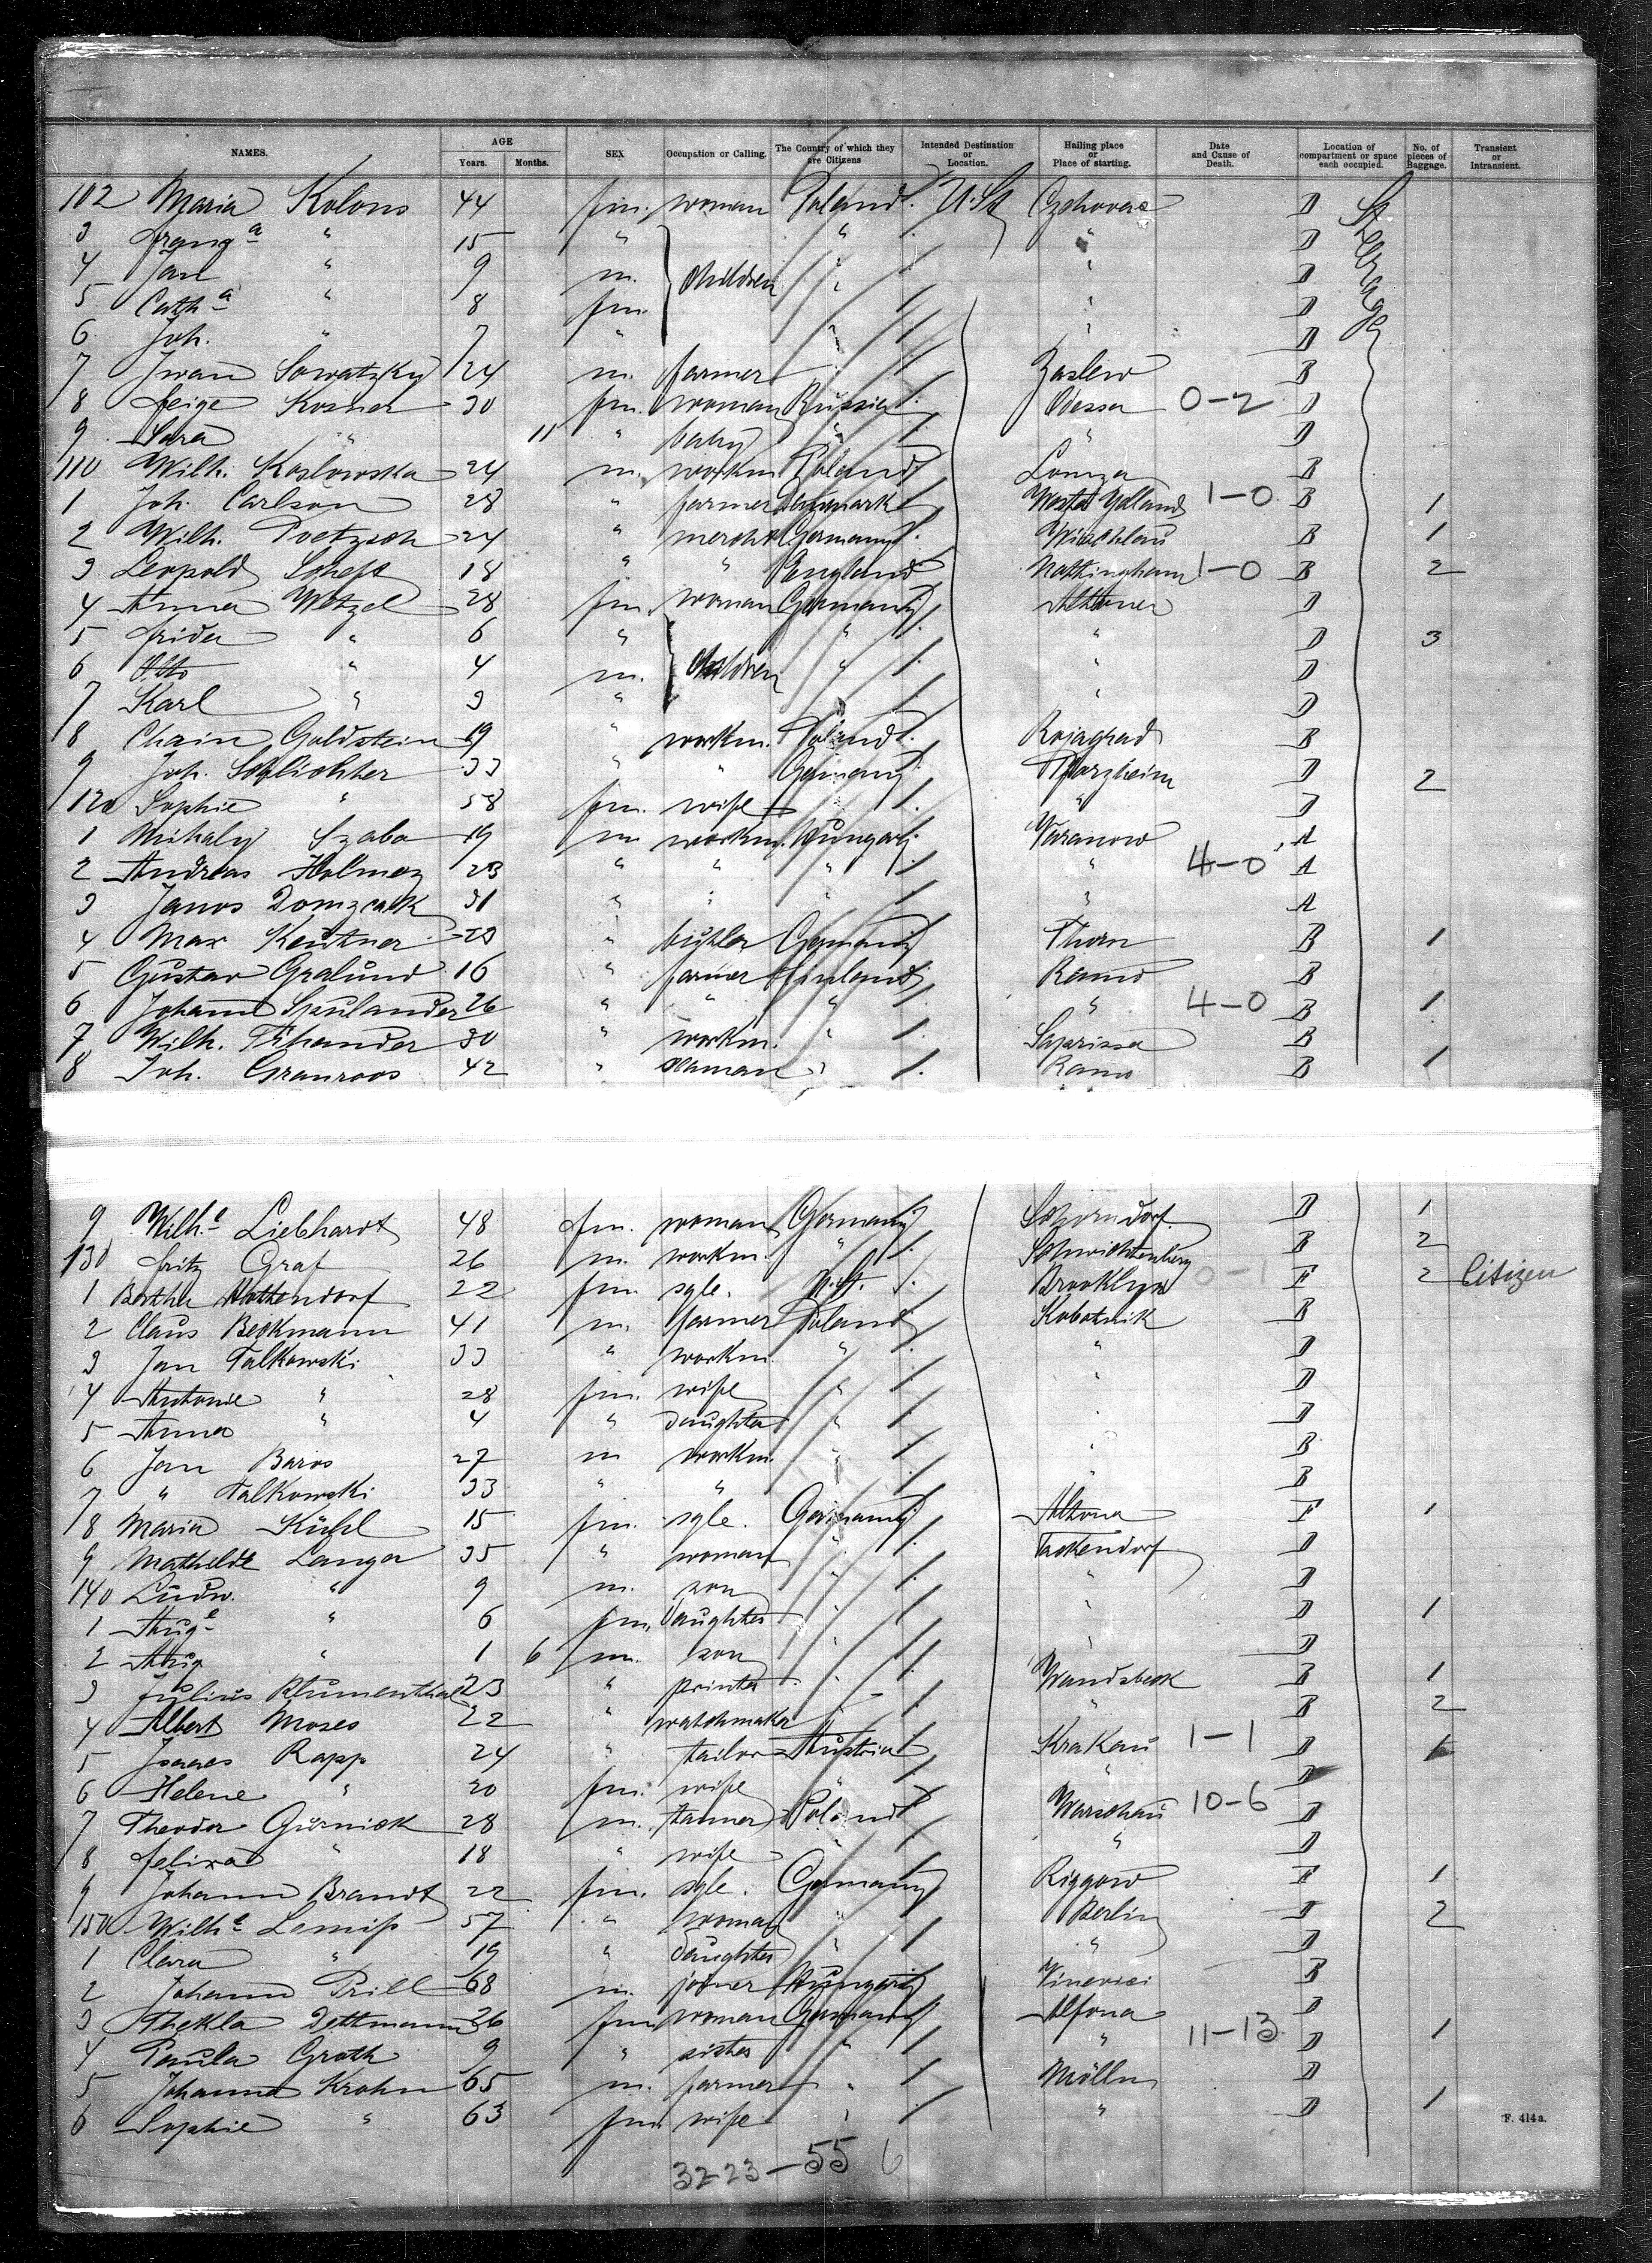 NAMES. AGE Years. Months. SEX Occupation or Calling. The Country of which they are Citizens Intended Destination or Location. Hailing place or Place of starting. Date and Cause of Death. Location of compartment or space each occupied. No. of pieces of Baggage. Transient or Intransient.
102 Maria Kolons 44 fm. woman Poland. U.St. D Steerage
3 " 15 " " " D
4 Jan " 9 m. children " " D
5 Cath.a " 8 fm. " D
6 Joh. " 7 " " " D
7 Iwan Sowatzky 24 m. farmer " Zaslew B
8 Feige Kosner 30 fm. woman Russia Odessa 0-2 D
9 Sara " 11 " baby " " D
110 Wilh. Koslowska 24 m. workm. Poland Lomza B
1 Joh. Carlson 28 " farmer Denmark 1-0 B 1
2 Wilh. Poetzsch 24 " mercht Germany B 1
3 Leopold 18 " " England Nottingham 1-0 B 2
4 Anna Wetzel 28 fm. woman Germany D
5 Frida " 6 " " " D 3
6 Otto " 4 m. children " " D
7 Karl " 3 " " D
8 Chain Goldstein 19 " workm. Poland Rojagrad B
9 Joh. Schlichter 33 " " Germany Pforzheim D 2
120 Sophie " 58 fm. wife " " D
1 Mihaly Szabo 19 m workm. Hungary Varanow A
2 Andreas Holmez 23 " " " " 4-0 A
3 Janos Domzcak 31 " " " " A
4 Max Keutner 23 " butler Germany Thorn B 1
5 Gustav Gralund 16 " farmer Finland B
6 Johann 26 " " " " 4-0 B 1
7 Wilh. 30 " workm. " B
8 Joh. Granroos 42 " seaman " B 1
9 Wilh.e Liebhardt 48 fm. woman Germany Schorndorf. D 1
130 Fritz Graf 26 m. workm. " Schwichtenberg B 2
1 Bertha Hottendorf 22 fm. sgle. U.St. Brooklyn 0-1 F 2 Citizen
2 Claus Beckmann 41 m. farmer Poland Kobotnik B
3 Jan Falkowski 33 " workm. " " D
4 Antonie " 28 fm. wife " " D
5 Anna " 4 " daughter " " D
6 Jan Baros 27 m workm. " " B
7 " Falkowski 33 " " " B
8 Maria Kühl 15 fm. sgle. Germany Altona F 1
9 Mathilde Langer 35 " woman " Tackendorf D
140 Ludw. " 9 m. son " " D
1 Aug.e " 6 fm. daughter " " D 1
2 Aug. " 1 6 m. son " " D
3 Julius Blumenthal 23 " printer " Wandsbeck B 1
4 Albert Moses 22 " watchmaker " " B 2
5 Isaac Rapp 24 " tailor Austria Krakau 1-1 D 1
6 Helene " 20 fm. wife " " D
7 Theodor Gurnick 28 m. farmer Poland Warschau 10-6 D
8 Felixa " 18 " wife " D
9 Johann Brandt 22 fm. sgle. Germany Riggow F 1
150 Wilh.e 57 " woman " Berlin D 2
1 Clara " 19 " daughter " " D
2 Johann Prill 68 m. joiner Hungary B
3 Thekla Dettmann 36 fm. woman Germany Altona D
4 Paula Groth 9 " sister " " 11-13 D 1
5 Johann Krohn 65 m. farmer " Mölln D
6 Sophie " 63 fm. wife " " D 1
F. 414a.
32-23-55 6